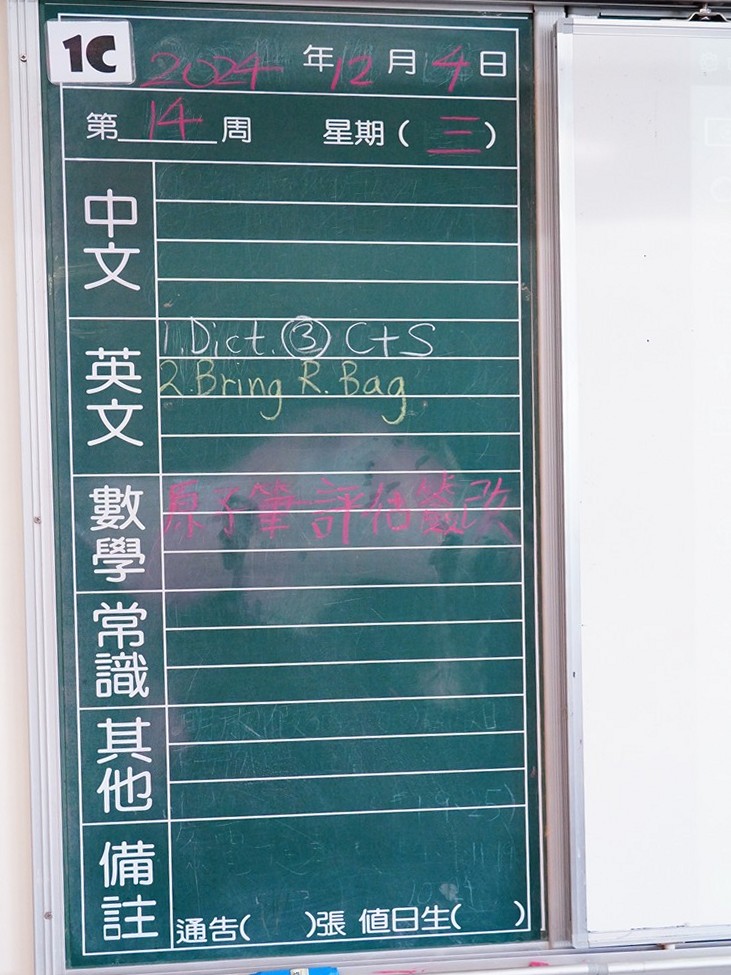 1C
2024年12月4日
第14周 星期(三)
中文
英文
1. Dict. ③ C+S
2. Bring R. Bag
數學
原子筆評估簽改
常識
其他
備註
通告( )張 值日生( )